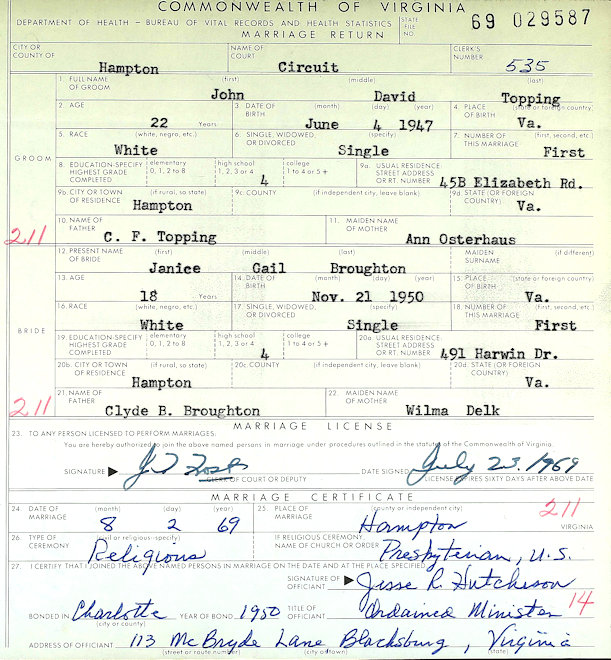 COMMONWEALTH OF VIRGINIA
DEPARTMENT OF HEALTH – BUREAU OF VITAL RECORDS AND HEALTH STATISTICS
MARRIAGE RETURN
STATE FILE NO. 69 029587
CITY OR COUNTY OF Hampton NAME OF COURT Circuit CLERK'S NUMBER 535
GROOM
1. FULL NAME OF GROOM (first) John (middle) David (last) Topping
2. AGE 22 Years 3. DATE OF BIRTH (month) (day) (year) June 4, 1947 4. PLACE OF BIRTH (state or foreign country) Va.
5. RACE (white, negro, etc.) White 6. SINGLE, WIDOWED, OR DIVORCED (specify) Single 7. NUMBER OF THIS MARRIAGE (first, second, etc.) First
8. EDUCATION-SPECIFY HIGHEST GRADE COMPLETED elementary 0, 1, 2 to 8 high school 1, 2, 3 or 4 4 college 1 to 4 or 5+ 9a. USUAL RESIDENCE STREET ADDRESS OR RT. NUMBER 45B Elizabeth Rd.
9b. CITY OR TOWN OF RESIDENCE (if rural, so state) Hampton 9c. COUNTY (if independent city, leave blank) 9d. STATE (OR FOREIGN COUNTRY) Va.
211 10. NAME OF FATHER C. F. Topping 11. MAIDEN NAME OF MOTHER Ann Osterhaus
BRIDE
12. PRESENT NAME OF BRIDE (first) Janice (middle) Gail (last) Broughton MAIDEN SURNAME (if different)
13. AGE 18 Years 14. DATE OF BIRTH (month) (day) (year) Nov. 21 1950 15. PLACE OF BIRTH (state or foreign country) Va.
16. RACE (white, negro, etc.) White 17. SINGLE, WIDOWED, OR DIVORCED (specify) Single 18. NUMBER OF THIS MARRIAGE (first, second, etc.) First
19. EDUCATION-SPECIFY HIGHEST GRADE COMPLETED elementary 0, 1, 2 to 8 high school 1, 2, 3 or 4 4 college 1 to 4 or 5+ 20a. USUAL RESIDENCE STREET ADDRESS OR RT. NUMBER 491 Harwin Dr.
20b. CITY OR TOWN OF RESIDENCE (if rural, so state) Hampton 20c. COUNTY (if independent city, leave blank) 20d. STATE (OR FOREIGN COUNTRY) Va.
211 21. NAME OF FATHER Clyde B. Broughton 22. MAIDEN NAME OF MOTHER Wilma Delk
MARRIAGE LICENSE
23. TO ANY PERSON LICENSED TO PERFORM MARRIAGES:
You are hereby authorized to join the above named persons in marriage under procedures outlined in the statutes of the Commonwealth of Virginia.
SIGNATURE DATE SIGNED July 23, 1969
CLERK OF COURT OR DEPUTY LICENSE EXPIRES SIXTY DAYS AFTER ABOVE DATE
MARRIAGE CERTIFICATE
24. DATE OF MARRIAGE (month) (day) (year) 8 2 69 25. PLACE OF MARRIAGE (county or independent city) Hampton 211 VIRGINIA
26. TYPE OF CEREMONY (civil or religious-specify) Religious IF RELIGIOUS CEREMONY, NAME OF CHURCH OR ORDER Presbyterian, U.S.
27. I CERTIFY THAT I JOINED THE ABOVE NAMED PERSONS IN MARRIAGE ON THE DATE AND AT THE PLACE SPECIFIED
SIGNATURE OF OFFICIANT Jesse R. Hutcheson
BONDED IN Charlotte (city or county) YEAR OF BOND 1950 TITLE OF OFFICIANT Ordained Minister 14
ADDRESS OF OFFICIANT 113 McBryde Lane Blacksburg, Virginia
(street or route number) (city or town) (state)